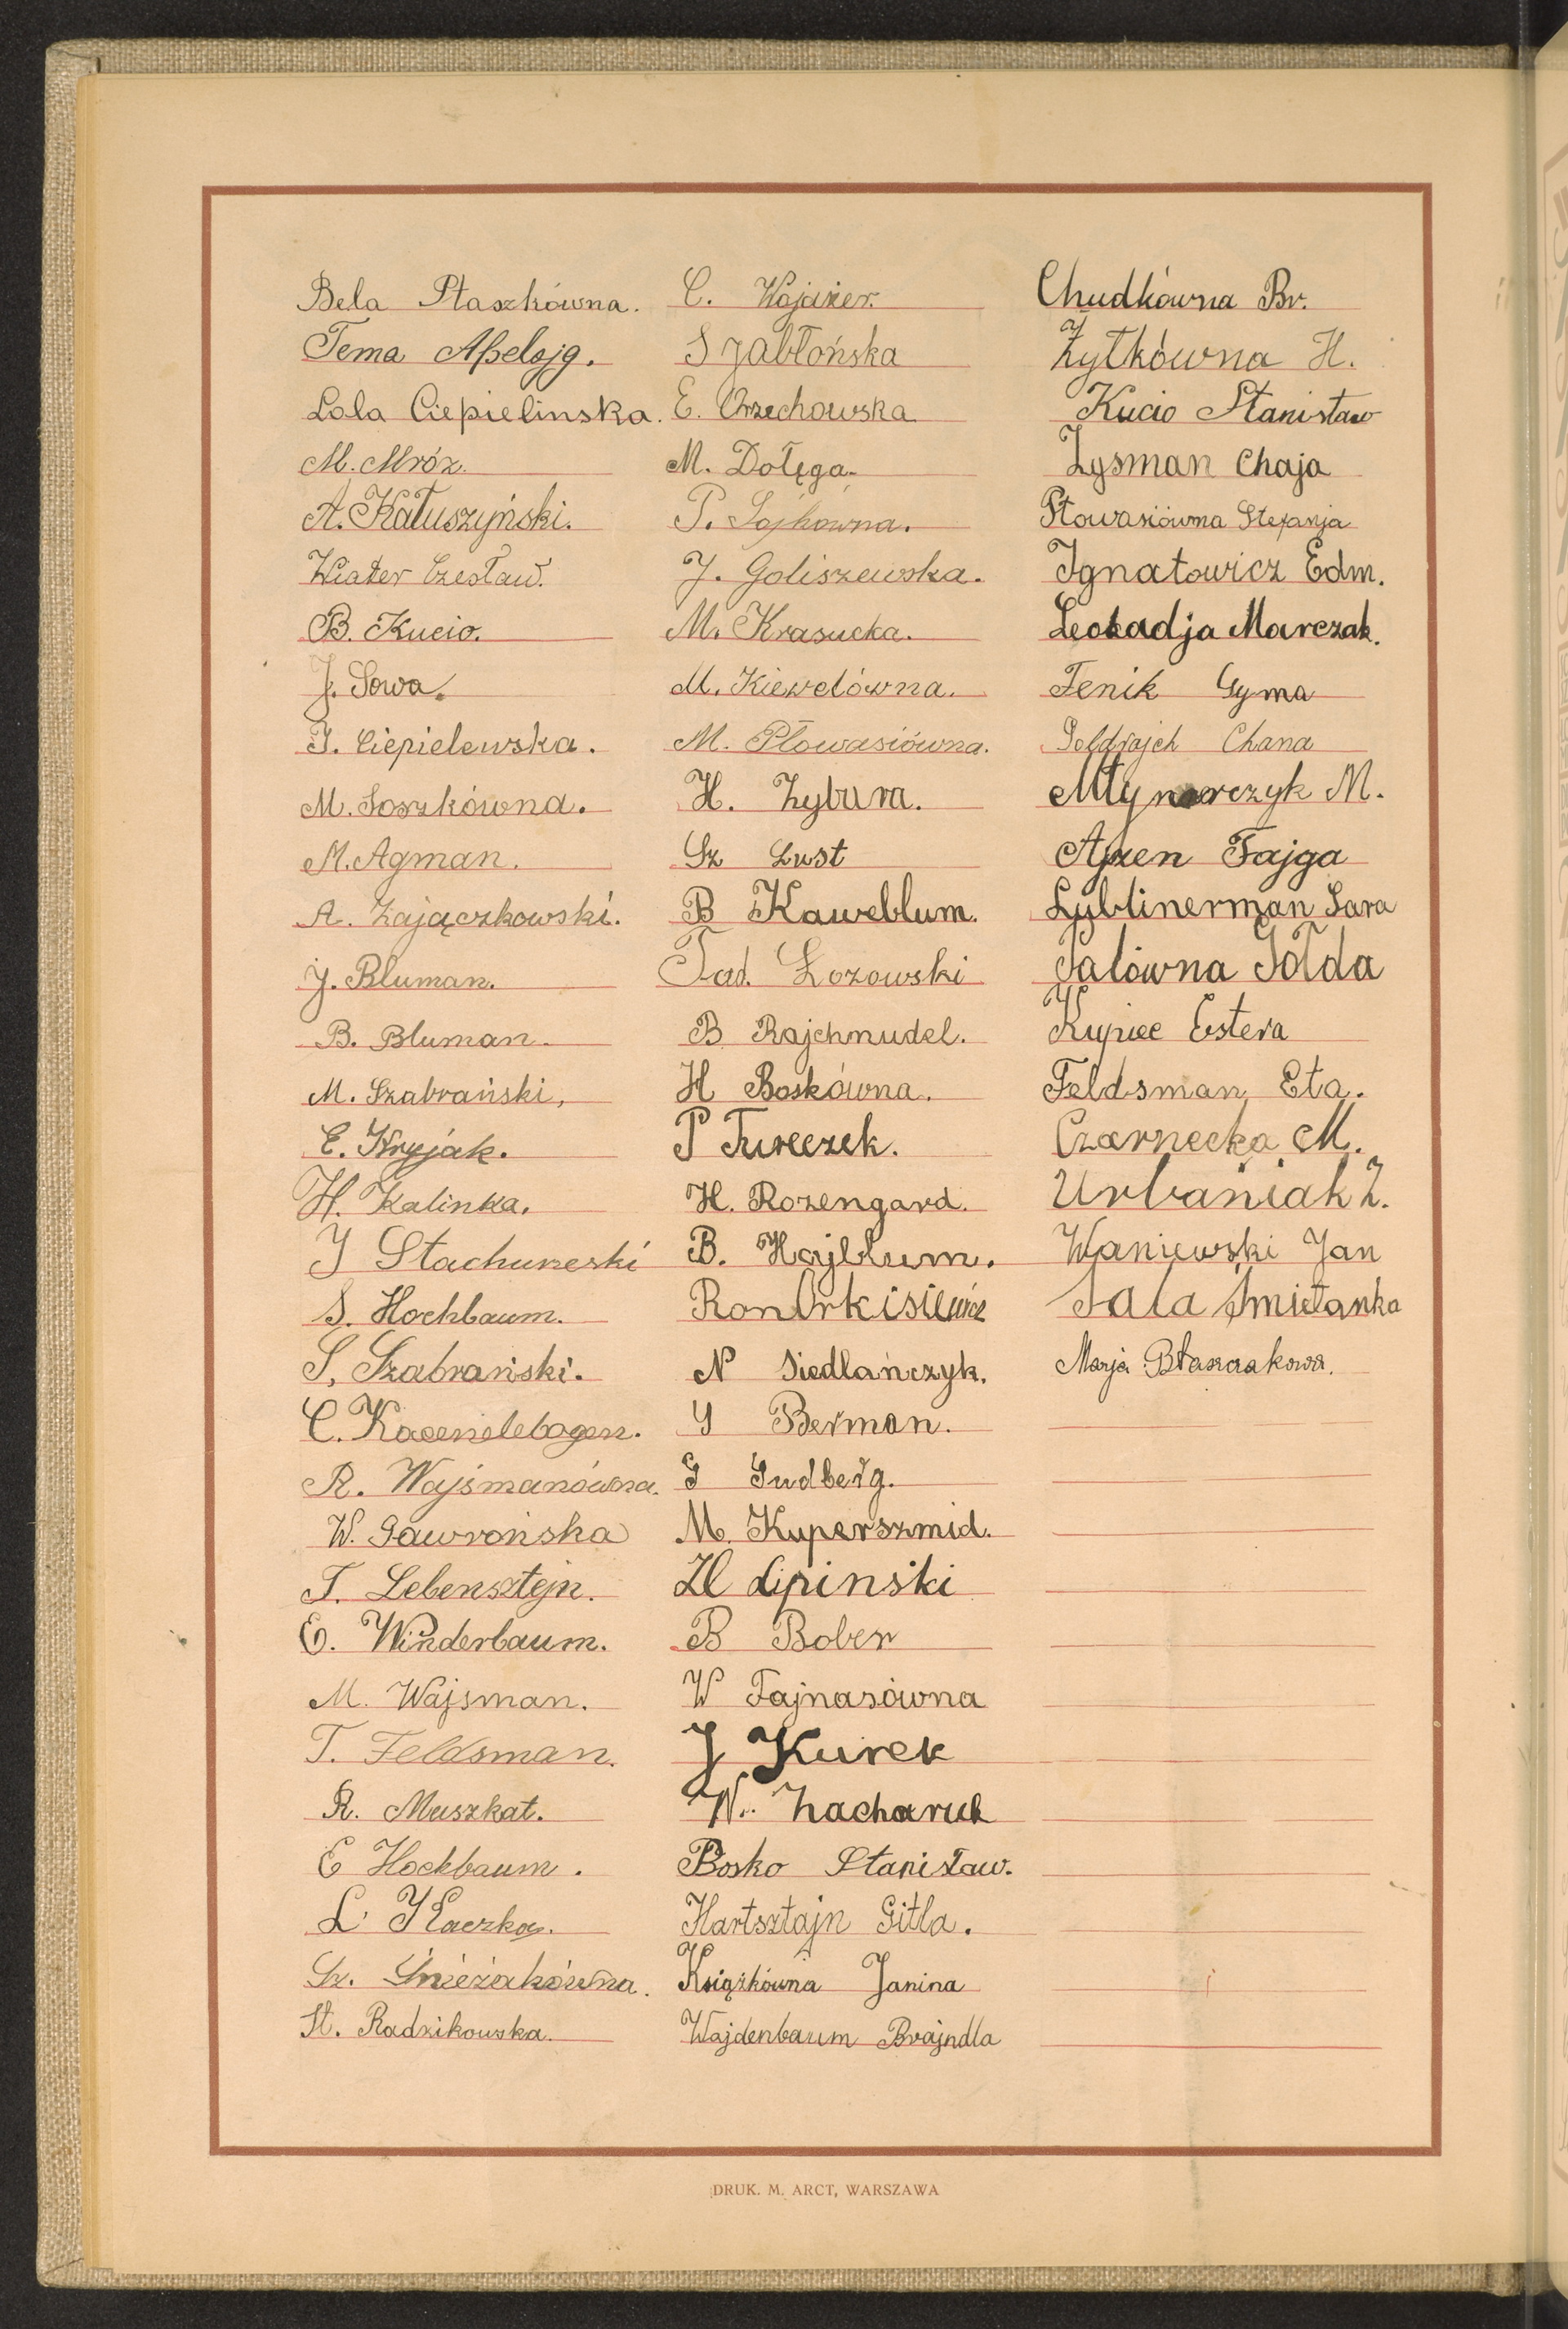 Bela Ptaszkówna.
Tema Apelojg.
Lola Ciepielinska.
M. Mróz.
A. Kałuszyński.
Wiater Czesław.
B. Kucio.
J. Sowa.
J. Ciepielewska.
M. Soszkówna.
M. Agman.
A. Zajączkowski.
J. Bluman.
B. Bluman.
M. Szabrański,
E. Kryjak.
H. Kalinka.
J Stachureski
S. Hochbaum.
S. Szabrański.
C. Kacenelebogen.
R. Wajsmanówna.
W. Gawrońska
T. Lebensztejn.
E. Winderbaum.
M. Wajsman.
T. Feldsman.
R. Muszkat.
E Hochbaum.
L. Kaczka.
Sz. Śnieżakówna.
St. Radzikowska.
C. Wojażer.
S Jabłońska
E. Orzechowska
M. Dołęga.
P. Sojkówna.
J. Goliszewska.
M. Krasucka.
M. Kiewelówna.
M. Płowasiówna.
H. Zybura.
Sz Lust
B Kaweblum.
Tad. Łozowski
B Rajchnudel.
H Boskówna.
P Tureczek.
H. Rozengard.
B. Hajblum.
Rom Orkisiewicz
N Siedlańczyk.
Y Berman.
G Gudberg.
M. Kuperszmid.
H Lipinski
B Bober
W Fajnasówna
J Kurek
W. Zacharuk
Bosko Stanisław.
Hartsztajn Gitla.
Książkówna Janina
Wajdenbaum Brajndla
Chudkówna Br.
Żytkówna H.
Kucio Stanisław
Zysman Chaja
Płowasiówna Stefanja
Ignatowicz Edm.
Leokadja Marczak.
Fenik Gyma
Goldfajch Chana
Młynarczyk M.
Ajzen Fajga
Lyblinerman Sara
Salówna Gołda
Kupiec Estera
Feldsman Eta.
Czarnecka M.
Urbaniak Z.
Waniewski Jan
Sala Śmietanka
Marja Błaszczakowa.
DRUK. M. ARCT, WARSZAWA